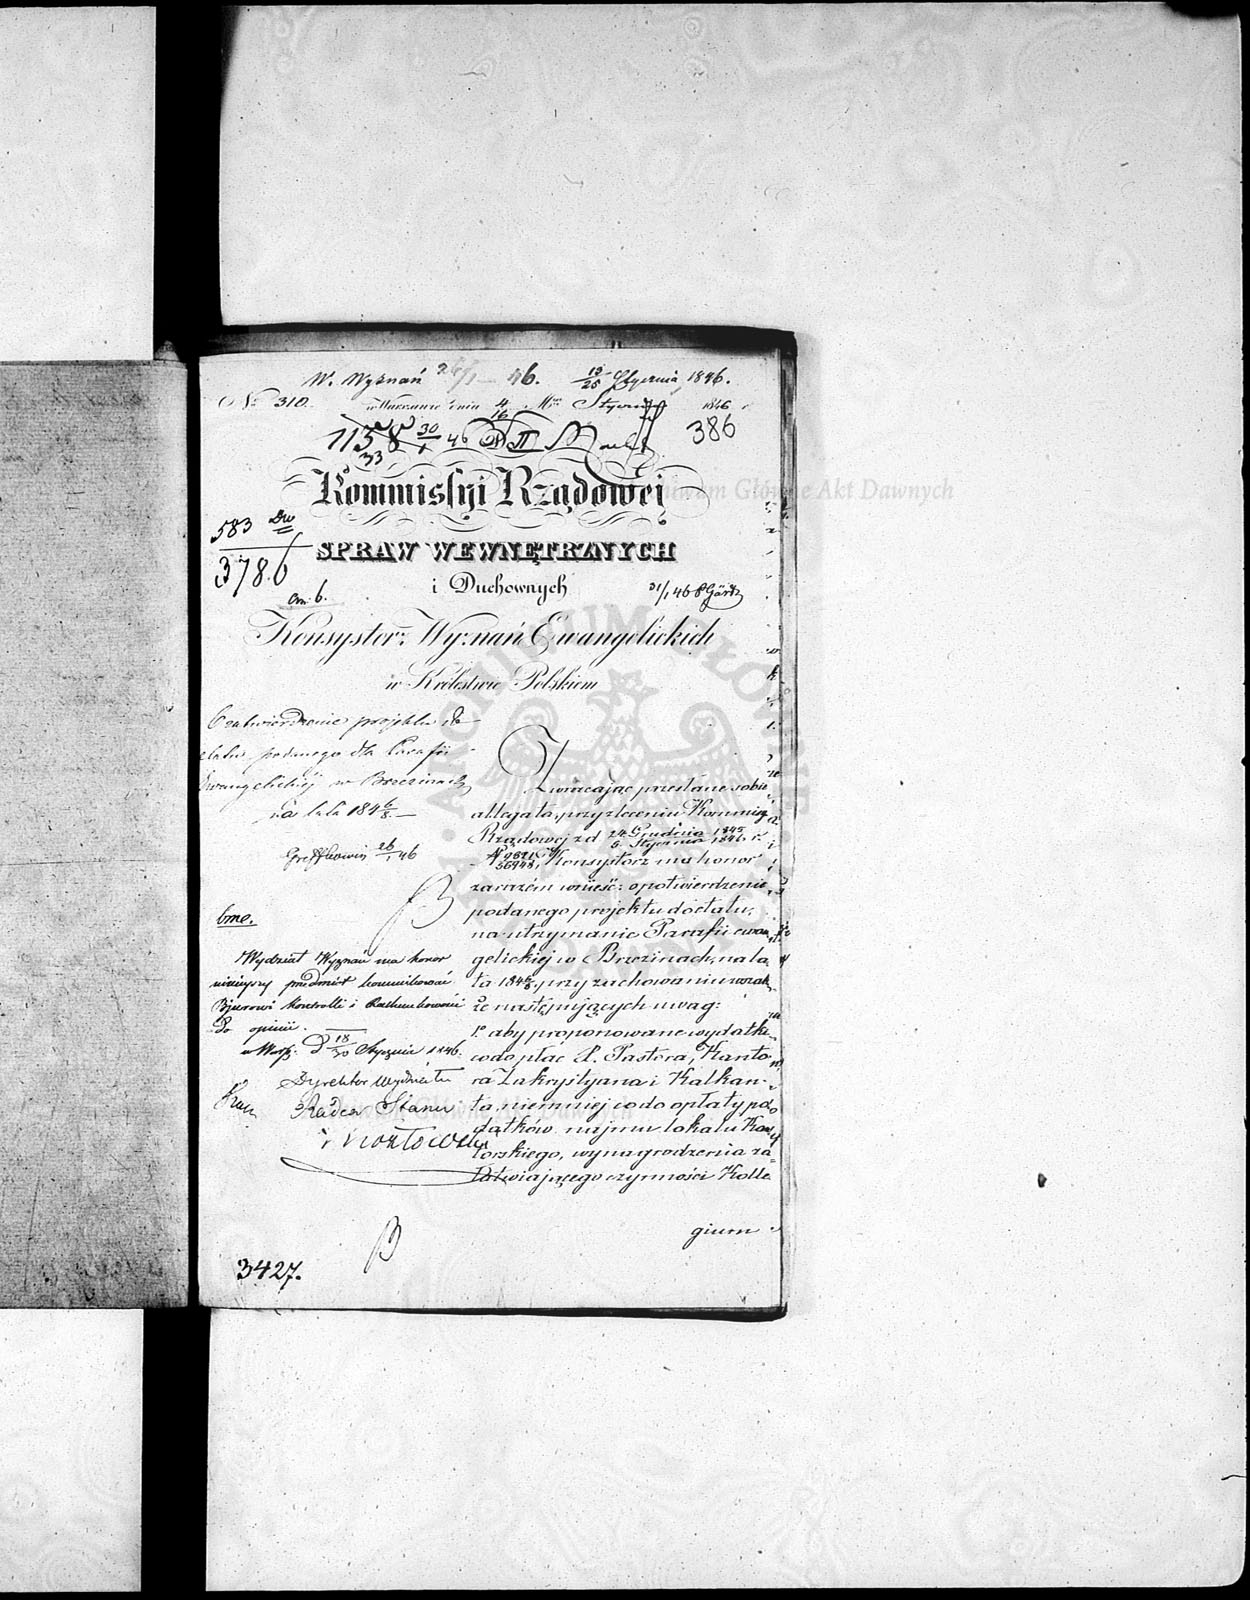 W. Wyznań 26/1 46. 13/25 Stycznia 1846.
No 310. w Warszawie dnia 4/16 Mca Stycznia 1846 r
1158 30/1 46 II
33
386
Kommissyi Rządowej
583
3786
SPRAW WEWNĘTRZNYCH
i Duchownych
31/1 46
Konsystorz Wyznań Ewangelickich
w Królestwie Polskiem
O zatwierdzenie projektu do
etatu podanego dla Parafii
Ewangelickiej w Brzezinach
na lata 1846/8.
26/1 46
Zwracając przesłane sobie
allegata, przy zleceniu Kommissyi
Rządowej z d 24 Grudnia 1845 / 5 Stycznia 1846 r.
N 9621/36948, Konsystorz ma honor
zarazem wnieść: o potwierdzenie
podanego projektu do etatu,
na utrzymanie Parafii ewan
gelickiej w Brzezinach, na la
ta 1846/8, przy zachowaniu wszak
że następujących uwag:
1o aby proponowane wydatki
co do płac P. Pastora, Kanto
ra Zakrystyana i Kalkan-
ta, niemniej co do opłaty po
datków najmu lokalu Kan
torskiego, wynagrodzenia za
łatwiającego czynności Kolle
gium
Wydział Wyznań ma honor
niniejszy przedmiot kommunikować
Bjurowi Kontrolli i Rachunkowości
do opinii.
w Warsz: d 18/30 Stycznia 1846.
Dyrektor Wydziału
Radca Stanu
3427.
Archiwum Główne Akt Dawnych